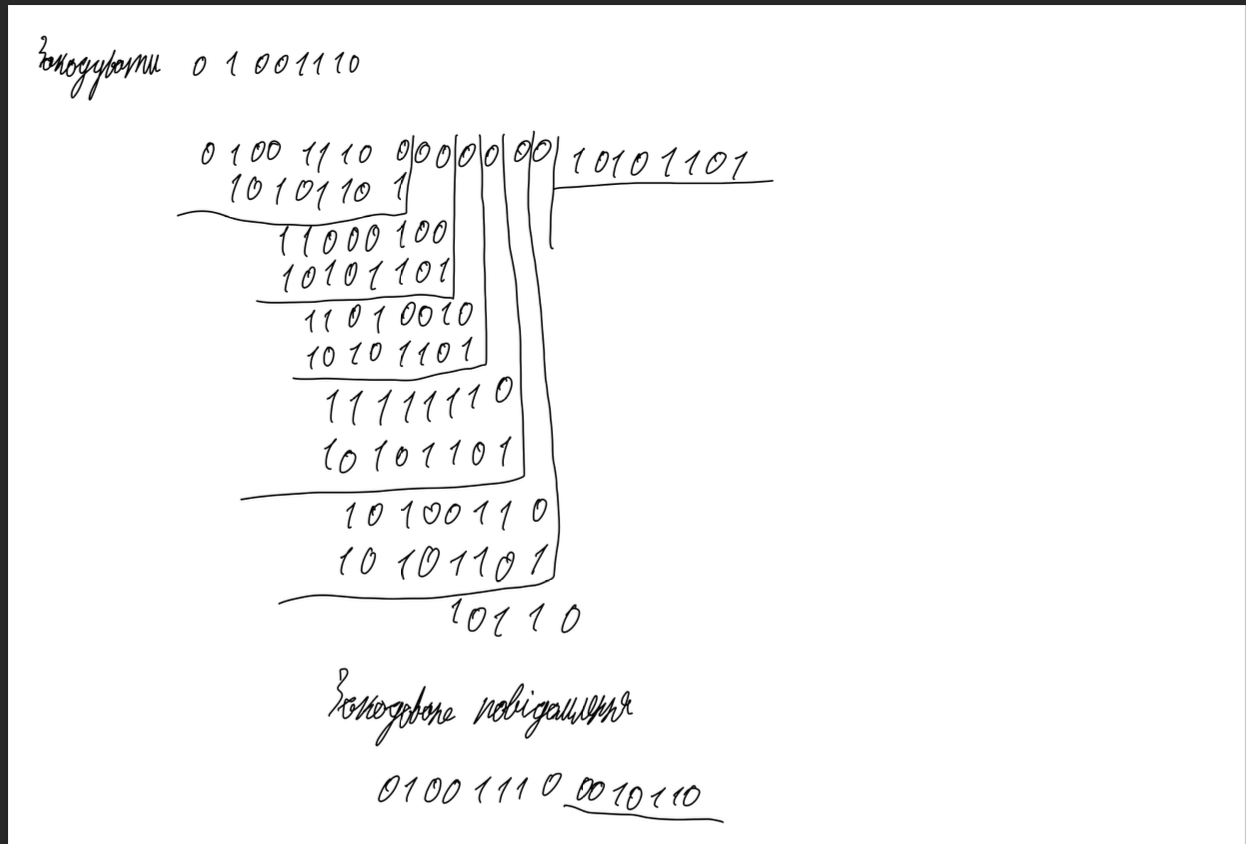 Закодувати 0 1 001110
0 1 00 11 10 000 0 0 00 10101101
1010110 1
11000100
10101101
11010010
10101101
11111110
10101101
10100110
10101101
10110
Закодоване повідомлення
01001110 0010110